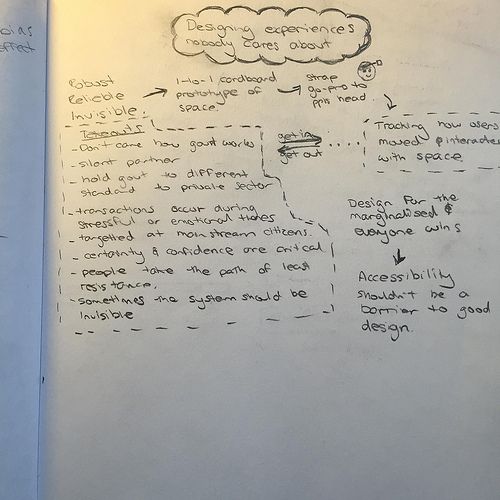 Designing experiences
nobody cares about
Robust
Reliable
Invisible.
1-to-1 cardboard
prototype of
space.
strap
go-pro to
ppls head.
Tracking how users
moved & interacted
with space
get in
get out
Takeouts
- Don't care how govt works
- silent partner
- hold govt to different
standard to private sector
- transactions occur during
stressful or emotional times
- targetted at mainstream citizens.
- certainty & confidence are critical
- people take the path of least
resistance.
- sometimes the system should be
invisible
Design for the
marginalised &
everyone wins
Accessibility
shouldn't be a
barrier to good
design.